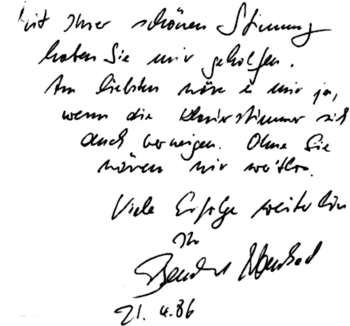 mit Ihrer schönen Stimmung
haben Sie mir geholfen.
Am liebsten wäre es mir ja,
wenn die Klavierstimmer sich
auch verneigen. Ohne Sie
wären wir wertlos.
Viele Erfolge weiterhin
Ihr
21. 4. 86